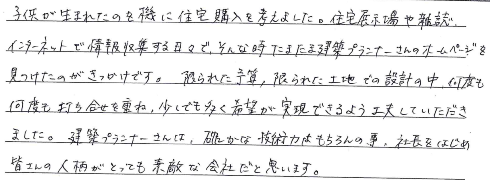 子供が生まれたのを機に住宅購入を考えました。住宅展示場や雑誌、
インターネットで情報収集する日々で、そんな時たまたま建築プランナーさんのホームページを
見つけたのがきっかけです。 限られた予算、限られた土地での設計の中 何度も
何度も打ち合せを重ね、少しでも多く希望が実現できるよう工夫していただき
ました。 建築プランナーさんは、確かな技術力はもちろんの事、社長をはじめ
皆さんの人柄がとっても素敵な会社だと思います。